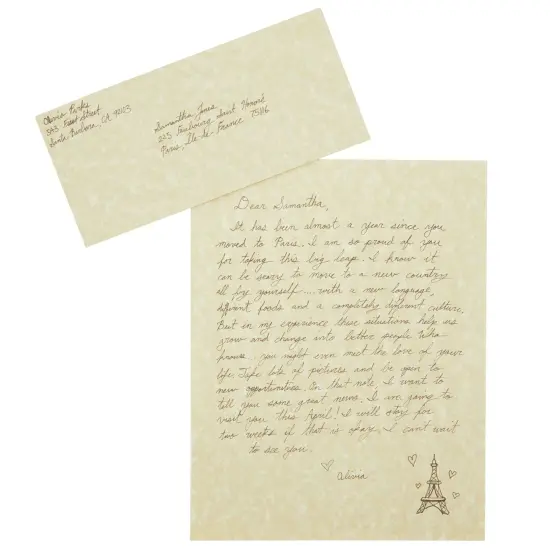 Olivia Parks
543 Street
Santa Barbara, CA
Samantha Jones
223 Faubourg Saint Honoré
Paris, Île-de-France 75116
Dear Samantha,
It has been almost a year since you
moved to Paris. I am so proud of you
for taking this big leap. I know it
can be scary to move to a new country
all by yourself....with a new language,
different foods and a completely different culture.
But in my experience these situations help us
grow and change into better people. Who
knows.. you might even meet the love of your
life. Take lots of pictures and be open to
new opportunities. On that note, I want to
tell you some great news. I am going to
visit you this April! I will stay for
two weeks if that is okay. I can't wait
to see you.
Olivia